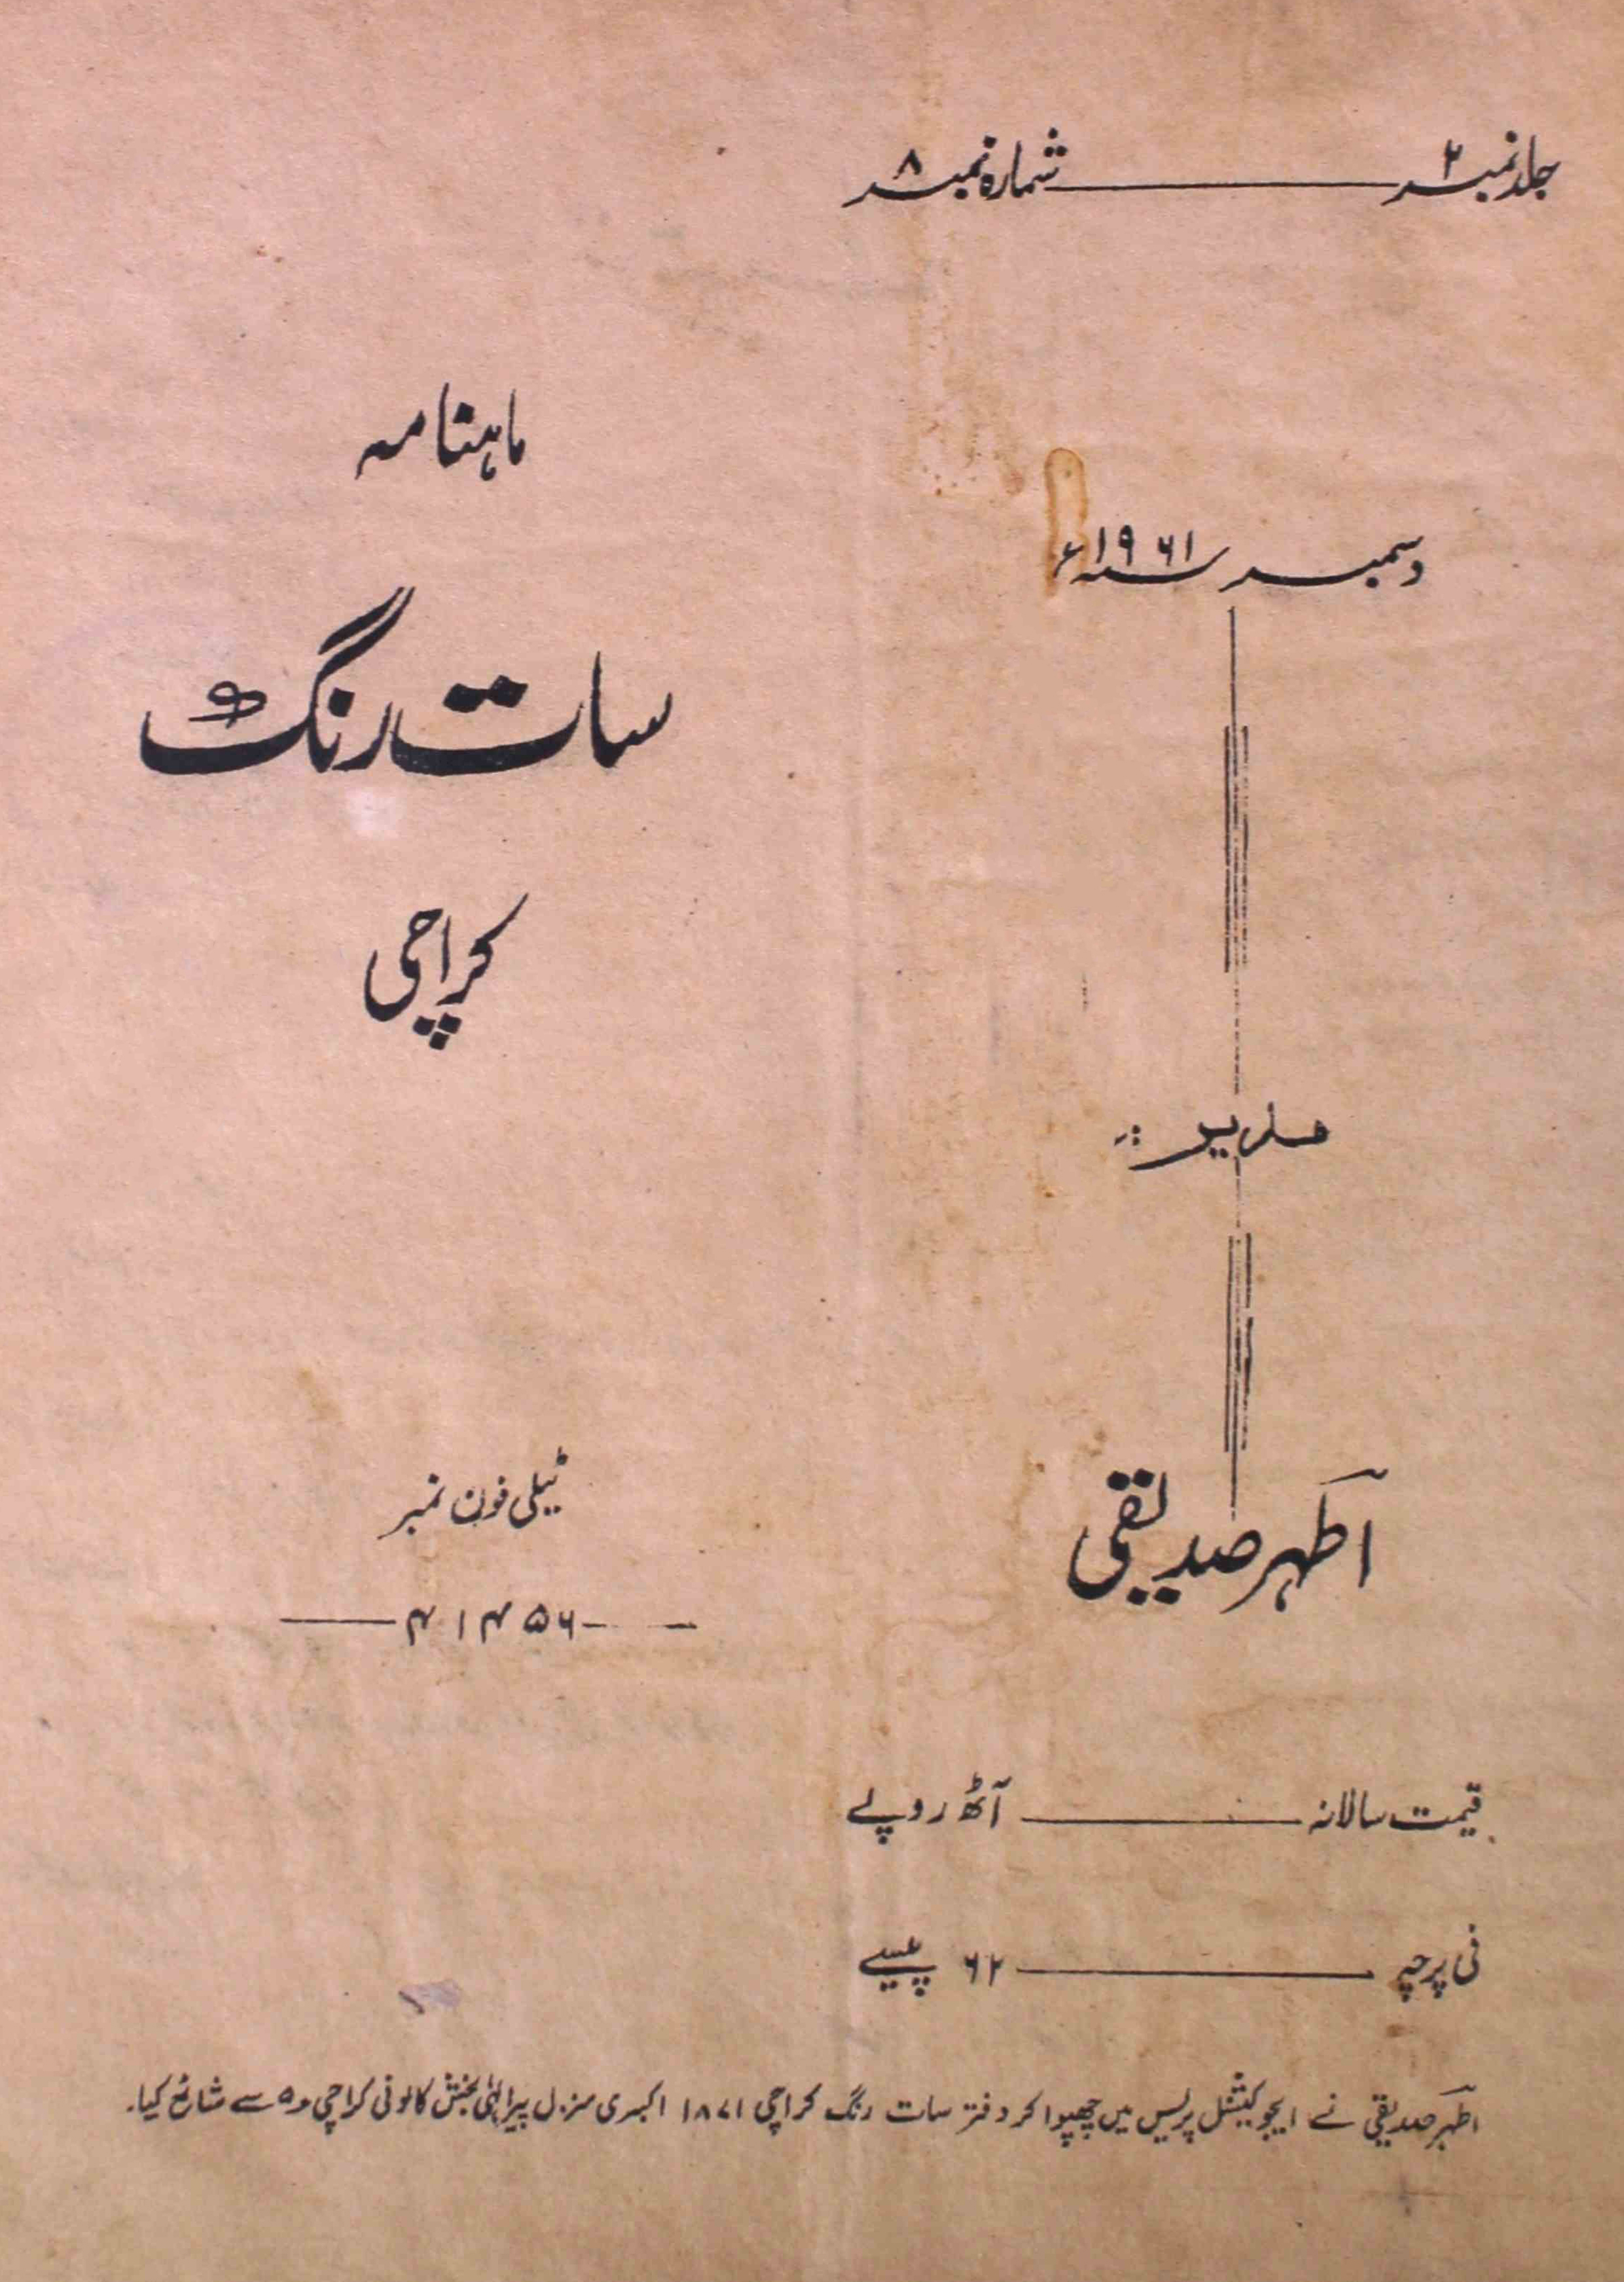 جلد نمبر ۲ ــــــ شمارہ نمبر ۸
ماہنامہ
سات رنگ
کراچی
دسمبر سنہ ۱۹۶۱ء
مدیر :-
اطہر صدیقی
ٹیلی فون نمبر
۴۱۴۵۶
قیمت سالانہ ــــــ آٹھ روپے
فی پرچہ ــــــ ۶۲ پیسے
اطہر صدیقی نے ایجوکیشنل پریس میں چھپوا کر دفتر سات رنگ کراچی ۱۸۷۱ اکبری منزل پیر الٰہی بخش کالونی کراچی ۵ سے شائع کیا۔